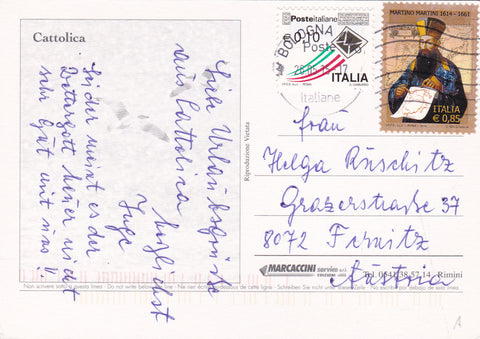 Cattolica
Posteitaliane
€0,10
ITALIA
BOLOGNA
Poste
20.05.15-17
Italiane
MARTINO MARTINI 1614 - 1661
ITALIA
€ 0,85
Liebe Urlaubsgrüße
aus Cattolica
herzlichst
Inge
Leider meint es der
Wettergott heuer nicht
sehr gut mit uns !!
Riproduzione Vietata
Frau
Helga Rüschitz
Grazerstraße 37
8072 Fernitz
Austria
MARCACCINI service s.r.l.
Tel. 0541.38.57.14 - Rimini
Non scrivere sotto a questa linea - Do not write below this line - Ne rien écrire au-dessous de cette ligne - Schreiben Sie nicht unter dieser Linie - No escribir por debajo de esta línea